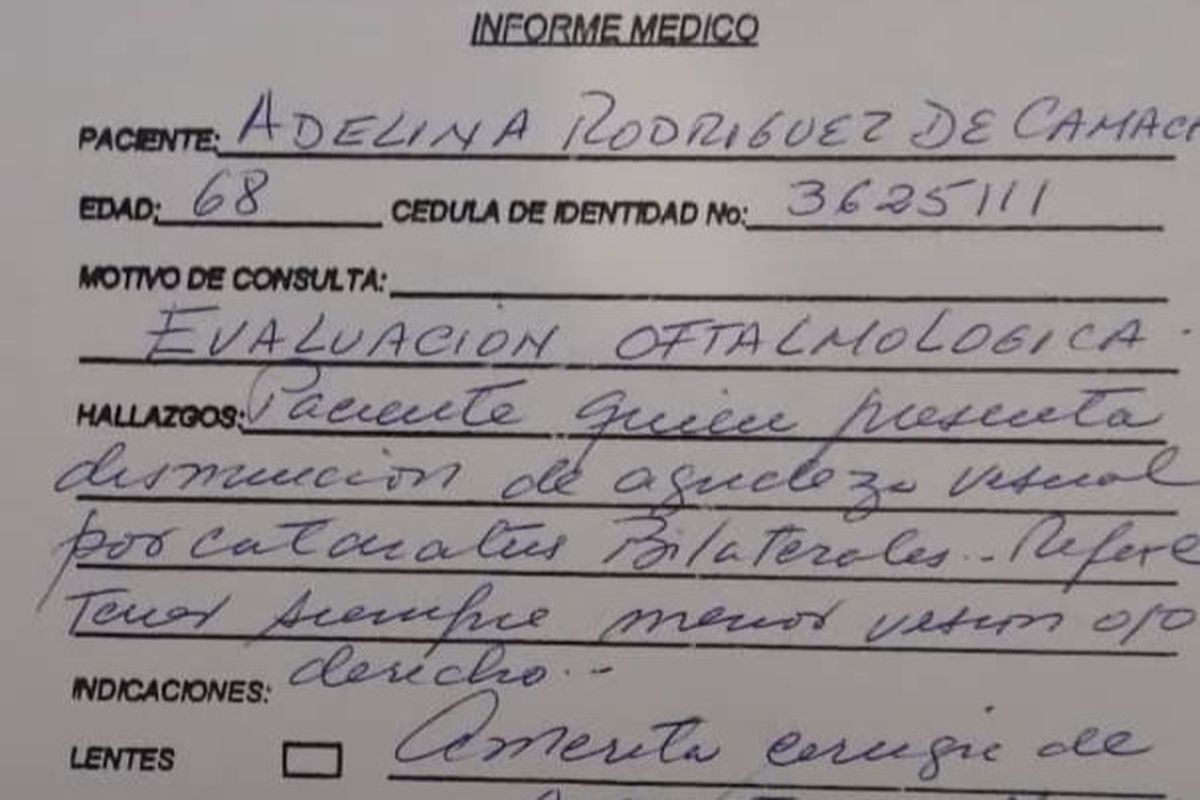 INFORME MEDICO
PACIENTE: ADELINA RODRIGUEZ DE CAMACH
EDAD: 68 CEDULA DE IDENTIDAD No: 3625111
MOTIVO DE CONSULTA:
EVALUACION OFTALMOLOGICA.
HALLAZGOS: Paciente quien presenta
disminucion de agudeza visual
por cataratas Bilaterales.. Refiere
Tener siempre menor vision ojo
derecho.-
INDICACIONES:
LENTES Amerita cirugia de